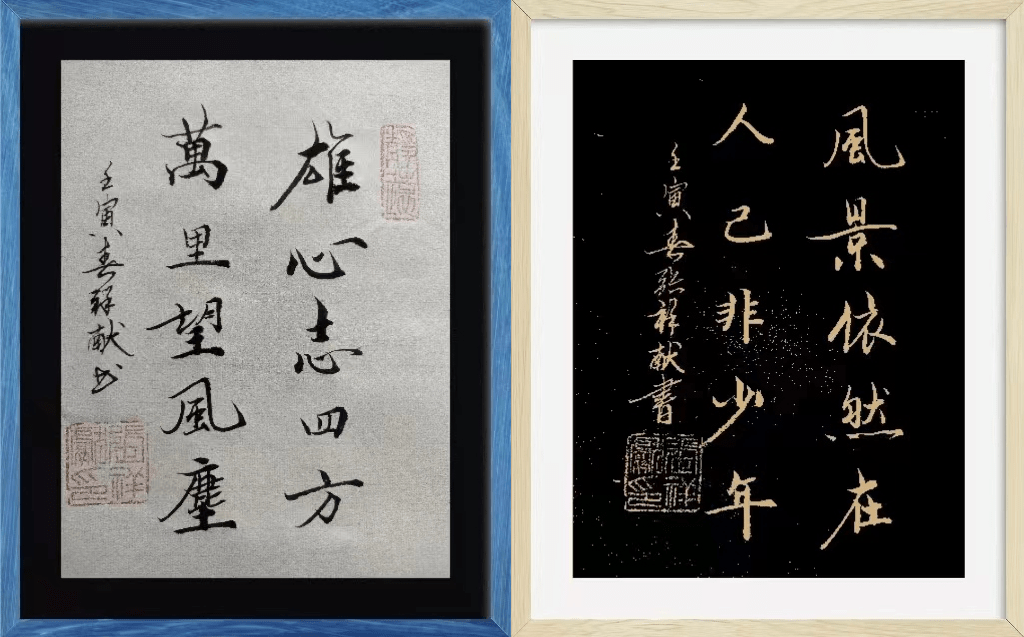 雄心志四方
萬里望風塵
壬寅春祥献书
風景依然在
人已非少年
壬寅春張祥献書